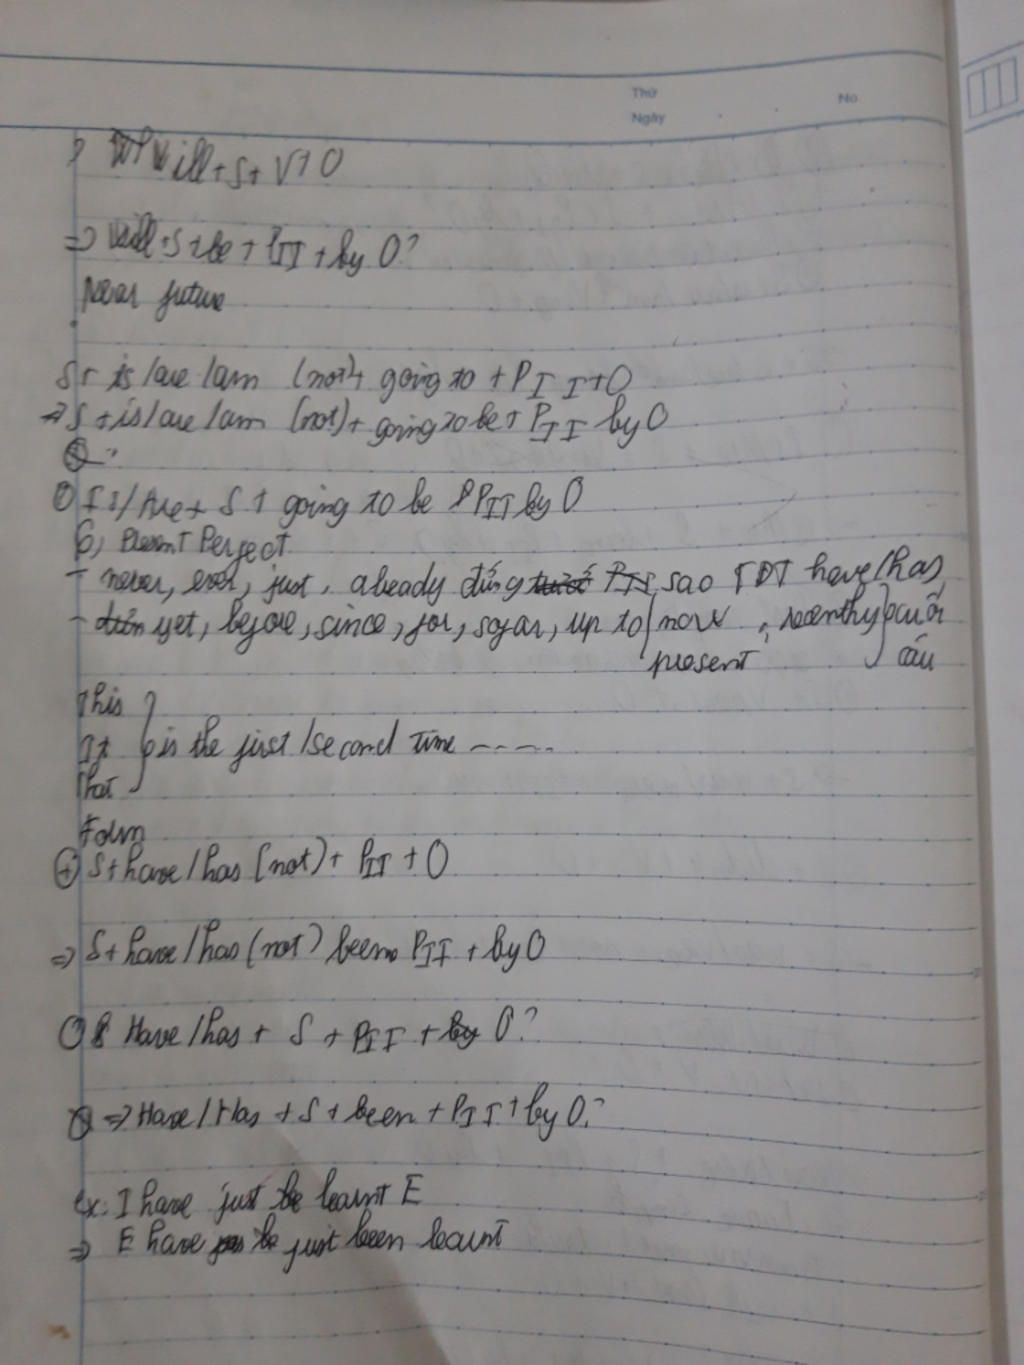 Thứ
Ngày
No.
? Will + S + V + O
=> Will + S + be + PII + by O?
Near future
S + is/are/am (not) + going to + PII + O
=> S + is/are/am (not) + going to be + PII by O
? Is/Are + S + going to be PII by O
6, Present Perfect
- never, ever, just, already đứng sao TĐT have/has
- yet, before, since, for, sofar, up to { now , recenthy } cuối
present câu
This
It } is the first/second time -----
That
Form
(+) S + have/has (not) + PII + O
=> S + have/has (not) been PII + by O
? Have/has + S + PII + O?
=> Have/Has + S + been + PII + by O?
ex: I have just learnt E
=> E have just been learnt